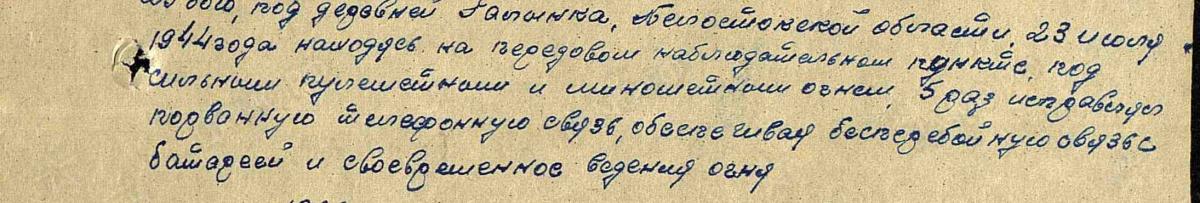 бою, под деревней Галынка, Белостокской области, 23 июля
1944 года находясь на передовом наблюдательном пункте, под
сильным пулеметным и минометным огнем, 5 раз исправлял
порванную телефонную связь, обеспечивая бесперебойную связь с
батареей и своевременное ведения огня